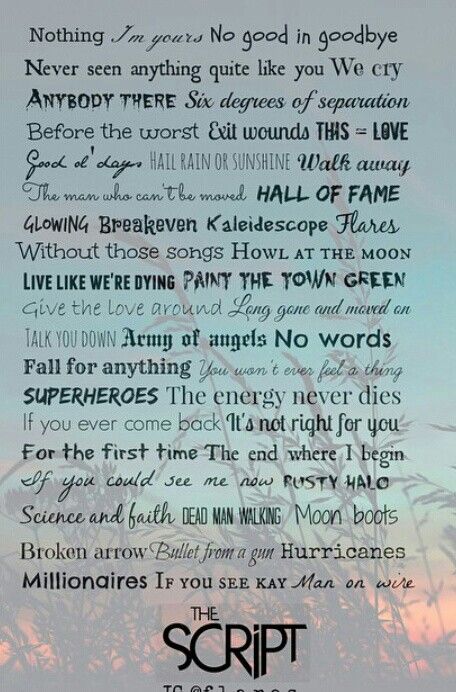 Nothing I'm yours No good in goodbye
Never seen anything quite like you We cry
ANYBODY THERE Six degrees of separation
Before the worst Exit wounds THIS = LOVE
Good ol' days HAIL RAIN OR SUNSHINE Walk away
The man who can't be moved HALL OF FAME
GLOWING Breakeven Kaleidescope Flares
Without those songs HOWL AT THE MOON
LIVE LIKE WE'RE DYING PAINT THE TOWN GREEN
Give the love around Long gone and moved on
TALK YOU DOWN Army of angels No words
Fall for anything You won't ever feel a thing
SUPERHEROES The energy never dies
If you ever come back It's not right for you
For the first time The end where I begin
If you could see me now RUSTY HALO
Science and faith DEAD MAN WALKING Moon boots
Broken arrow Bullet from a gun Hurricanes
Millionaires IF YOU SEE KAY Man on wire
THE
SCRIPT